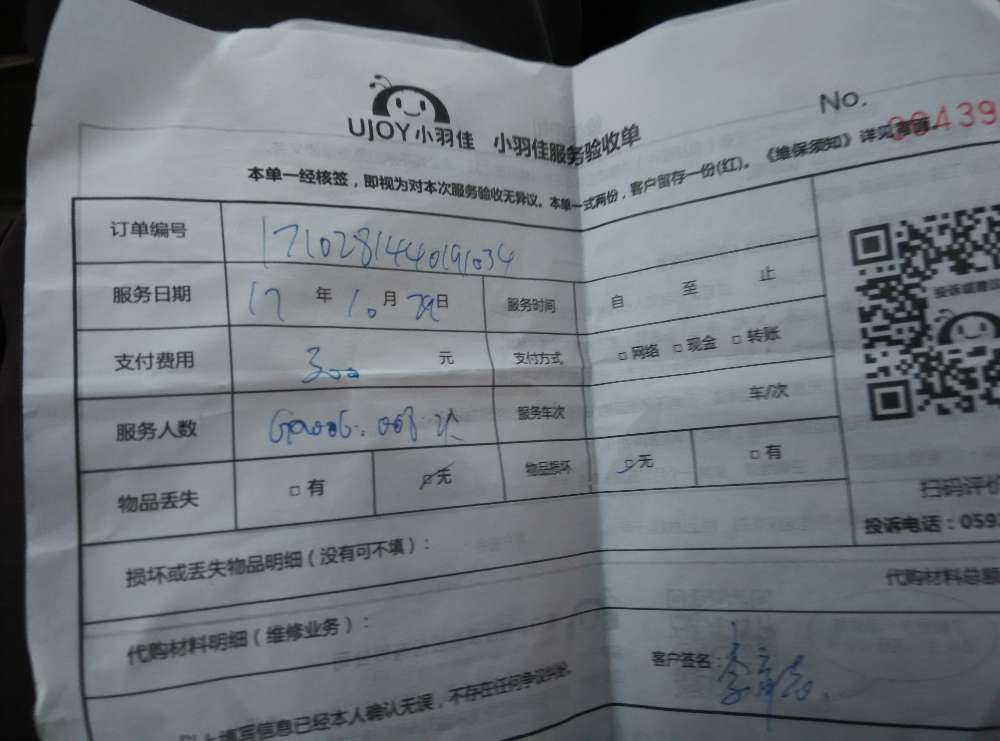 UJOY小羽佳 小羽佳服务验收单 No. 00439
本单一经核签，即视为对本次服务验收无异议。本单一式两份，客户留存一份(红)。《维保须知》详见背面。
订单编号 1710281440191034
服务日期 17 年 10 月 29 日 服务时间 自 至 止
支付费用 300 元 支付方式 □ 网络 □ 现金 □ 转账
服务人数 人 服务车次 车/次
物品丢失 □ 有 ☑ 无 物品损坏 ☑ 无 □ 有
扫码评价
投诉电话：059
损坏或丢失物品明细（没有可不填）：
代购材料总额
代购材料明细（维修业务）：
客户签名：
以上填写信息已经本人确认无误，不存在任何争议纠纷。